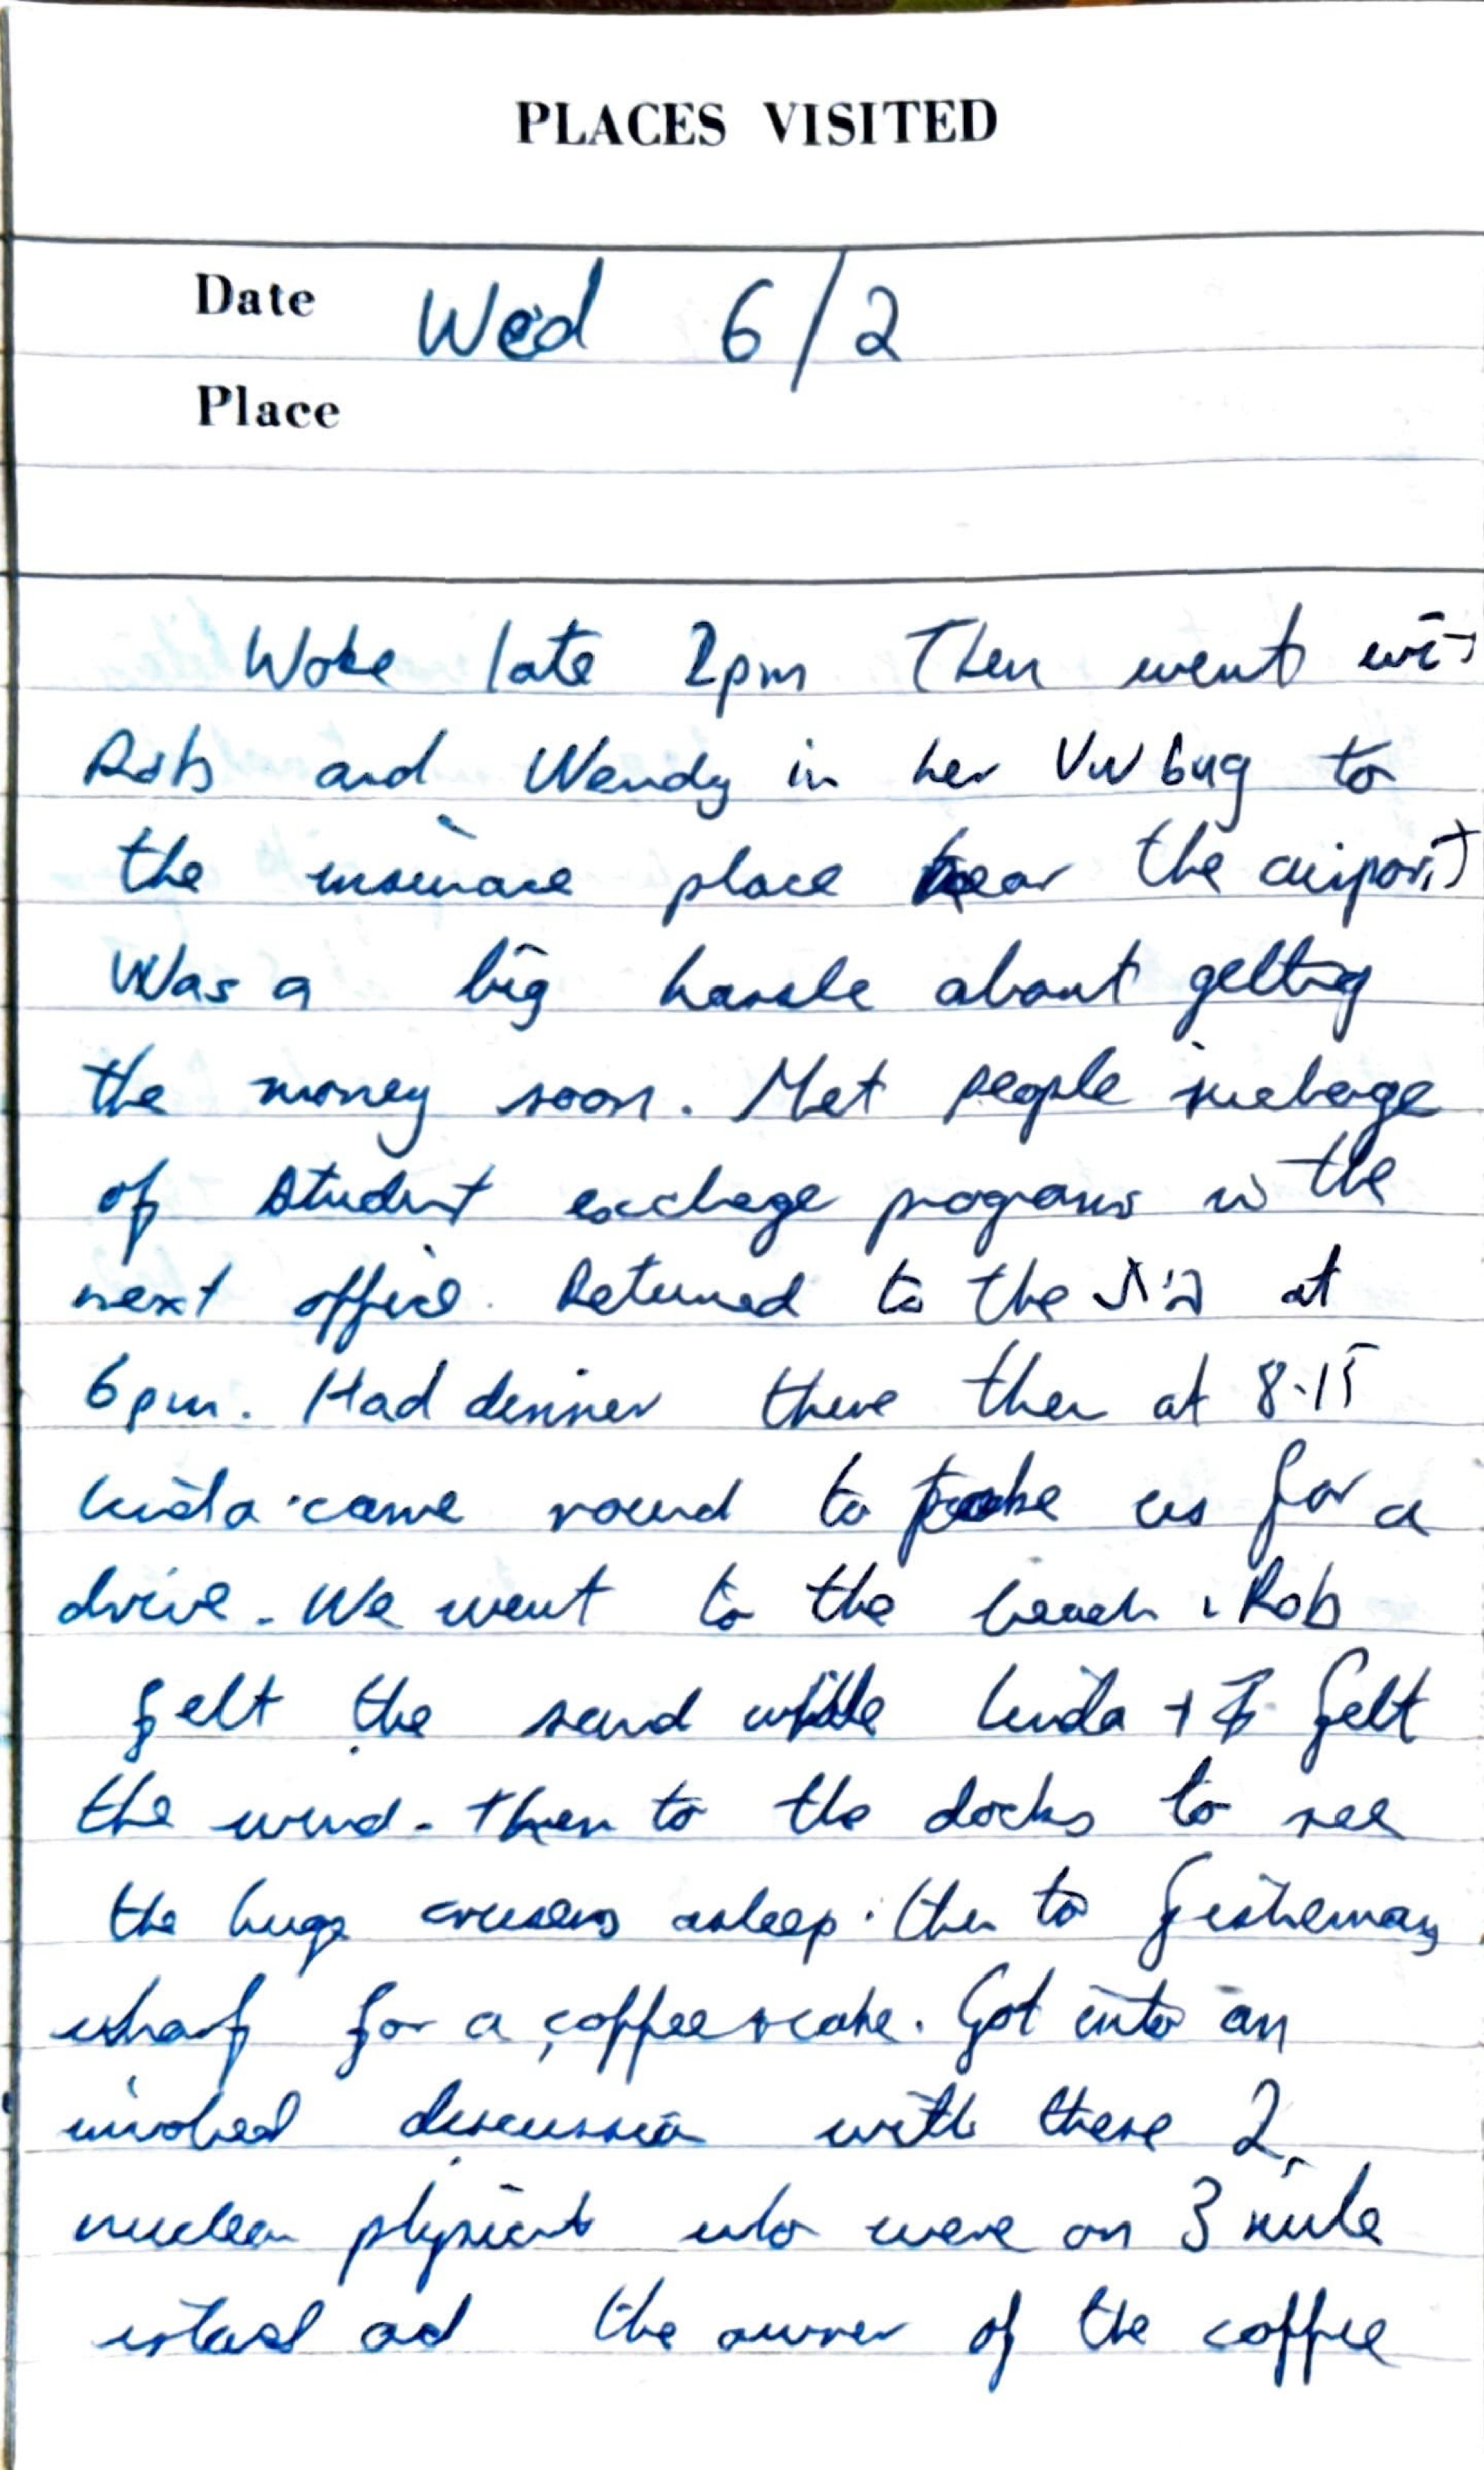 PLACES VISITED
Date Wed 6/2
Place
Woke late 2pm Then went with
Rob and Wendy in her VW bug to
the insurance place near the airport
Was a big hassle about getting
the money soon. Met people incharge
of student exchange programs in the
next office. Returned to the בית at
6pm. Had dinner there then at 8.15
Linda came round to take us for a
drive. We went to the beach. Rob
felt the sand while Linda + I felt
the wind. Then to the docks to see
the huge cruisers asleep. then to fishermans
wharf for a coffee + cake. Got into an
involved discussion with these 2
nuclear physicists who were on 3 mile
island and the owner of the coffee